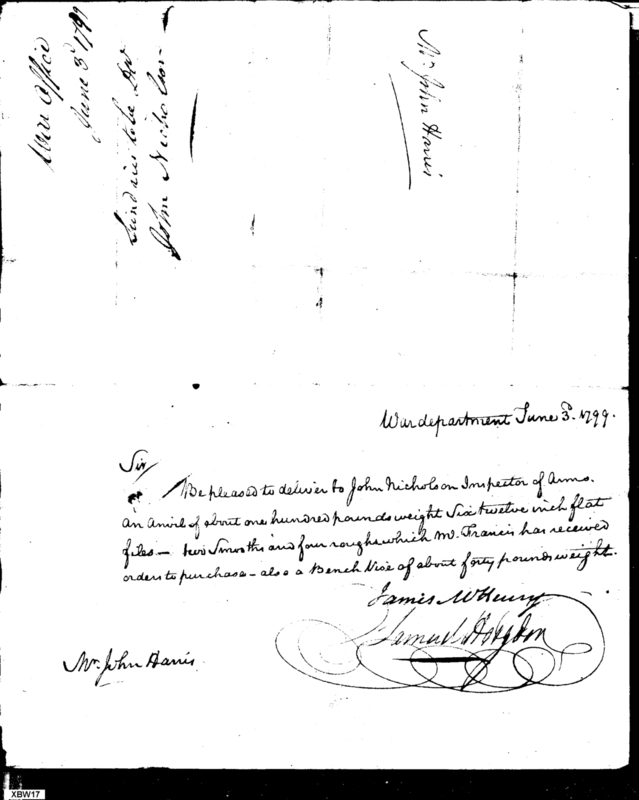 War Office
June 3d 1799
Sundries to be Dd
John Nicholson
Mr. John Harris
War department June 3d. 1799.
Sir
Be pleased to deliver to John Nicholson Inspector of Arms.
an Anvil of about one hundred pounds weight Six twelve inch flat
files — two Smooths and four roughs which Mr. Francis has received
orders to purchase — also a Bench Vice of about forty pounds weight.
James McHenry
Samuel Hodgdon
Mr. John Harris
XBW17